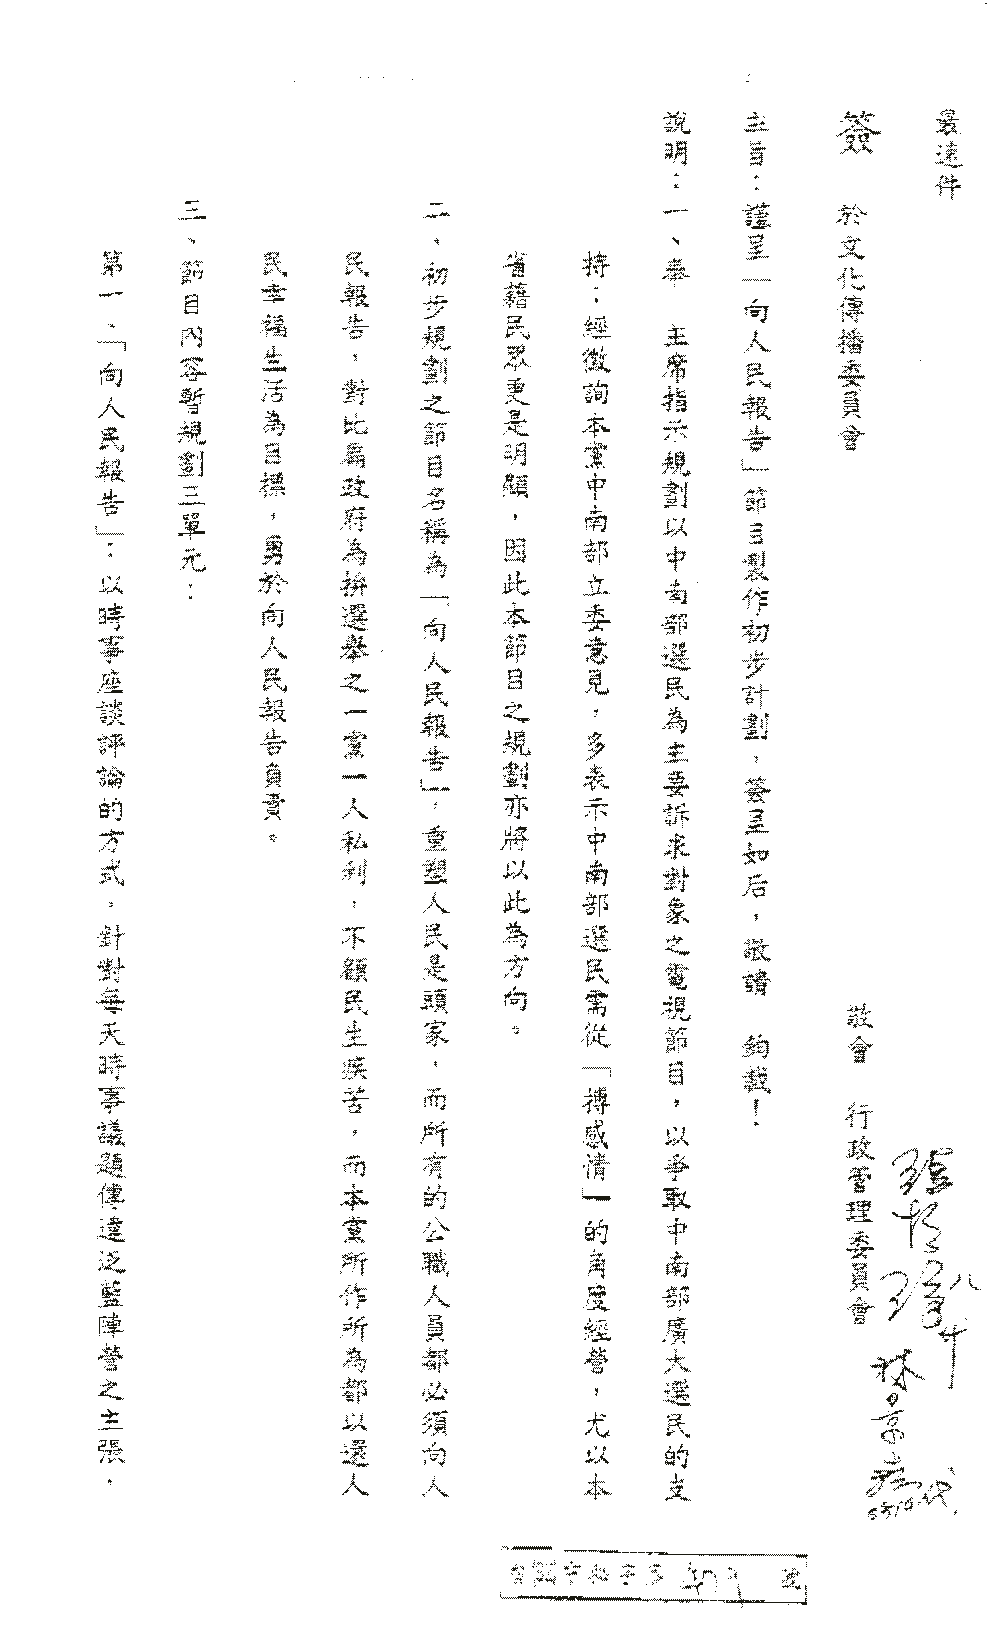 最速件
簽　於文化傳播委員會
敬會　行政管理委員會
主旨：謹呈「向人民報告」節目製作初步計劃，簽呈如后，敬請　鈞裁！
說明：一、奉　主席指示規劃以中南部選民為主要訴求對象之電視節目，以爭取中南部廣大選民的支
持；經徵詢本黨中南部立委意見，多表示中南部選民需從「搏感情」的角度經營，尤以本
省籍民眾更是明顯，因此本節目之規劃亦將以此為方向。
二、初步規劃之節目名稱為「向人民報告」，重塑人民是頭家，而所有的公職人員都必須向人
民報告，對比扁政府為拚選舉之一黨一人私利，不顧民生疾苦，而本黨所作所為都以還人
民幸福生活為目標，勇於向人民報告負責。
三、節目內容暫規劃三單元：
第一、「向人民報告」：以時事座談評論的方式，針對每天時事議題傳達泛藍陣營之主張，